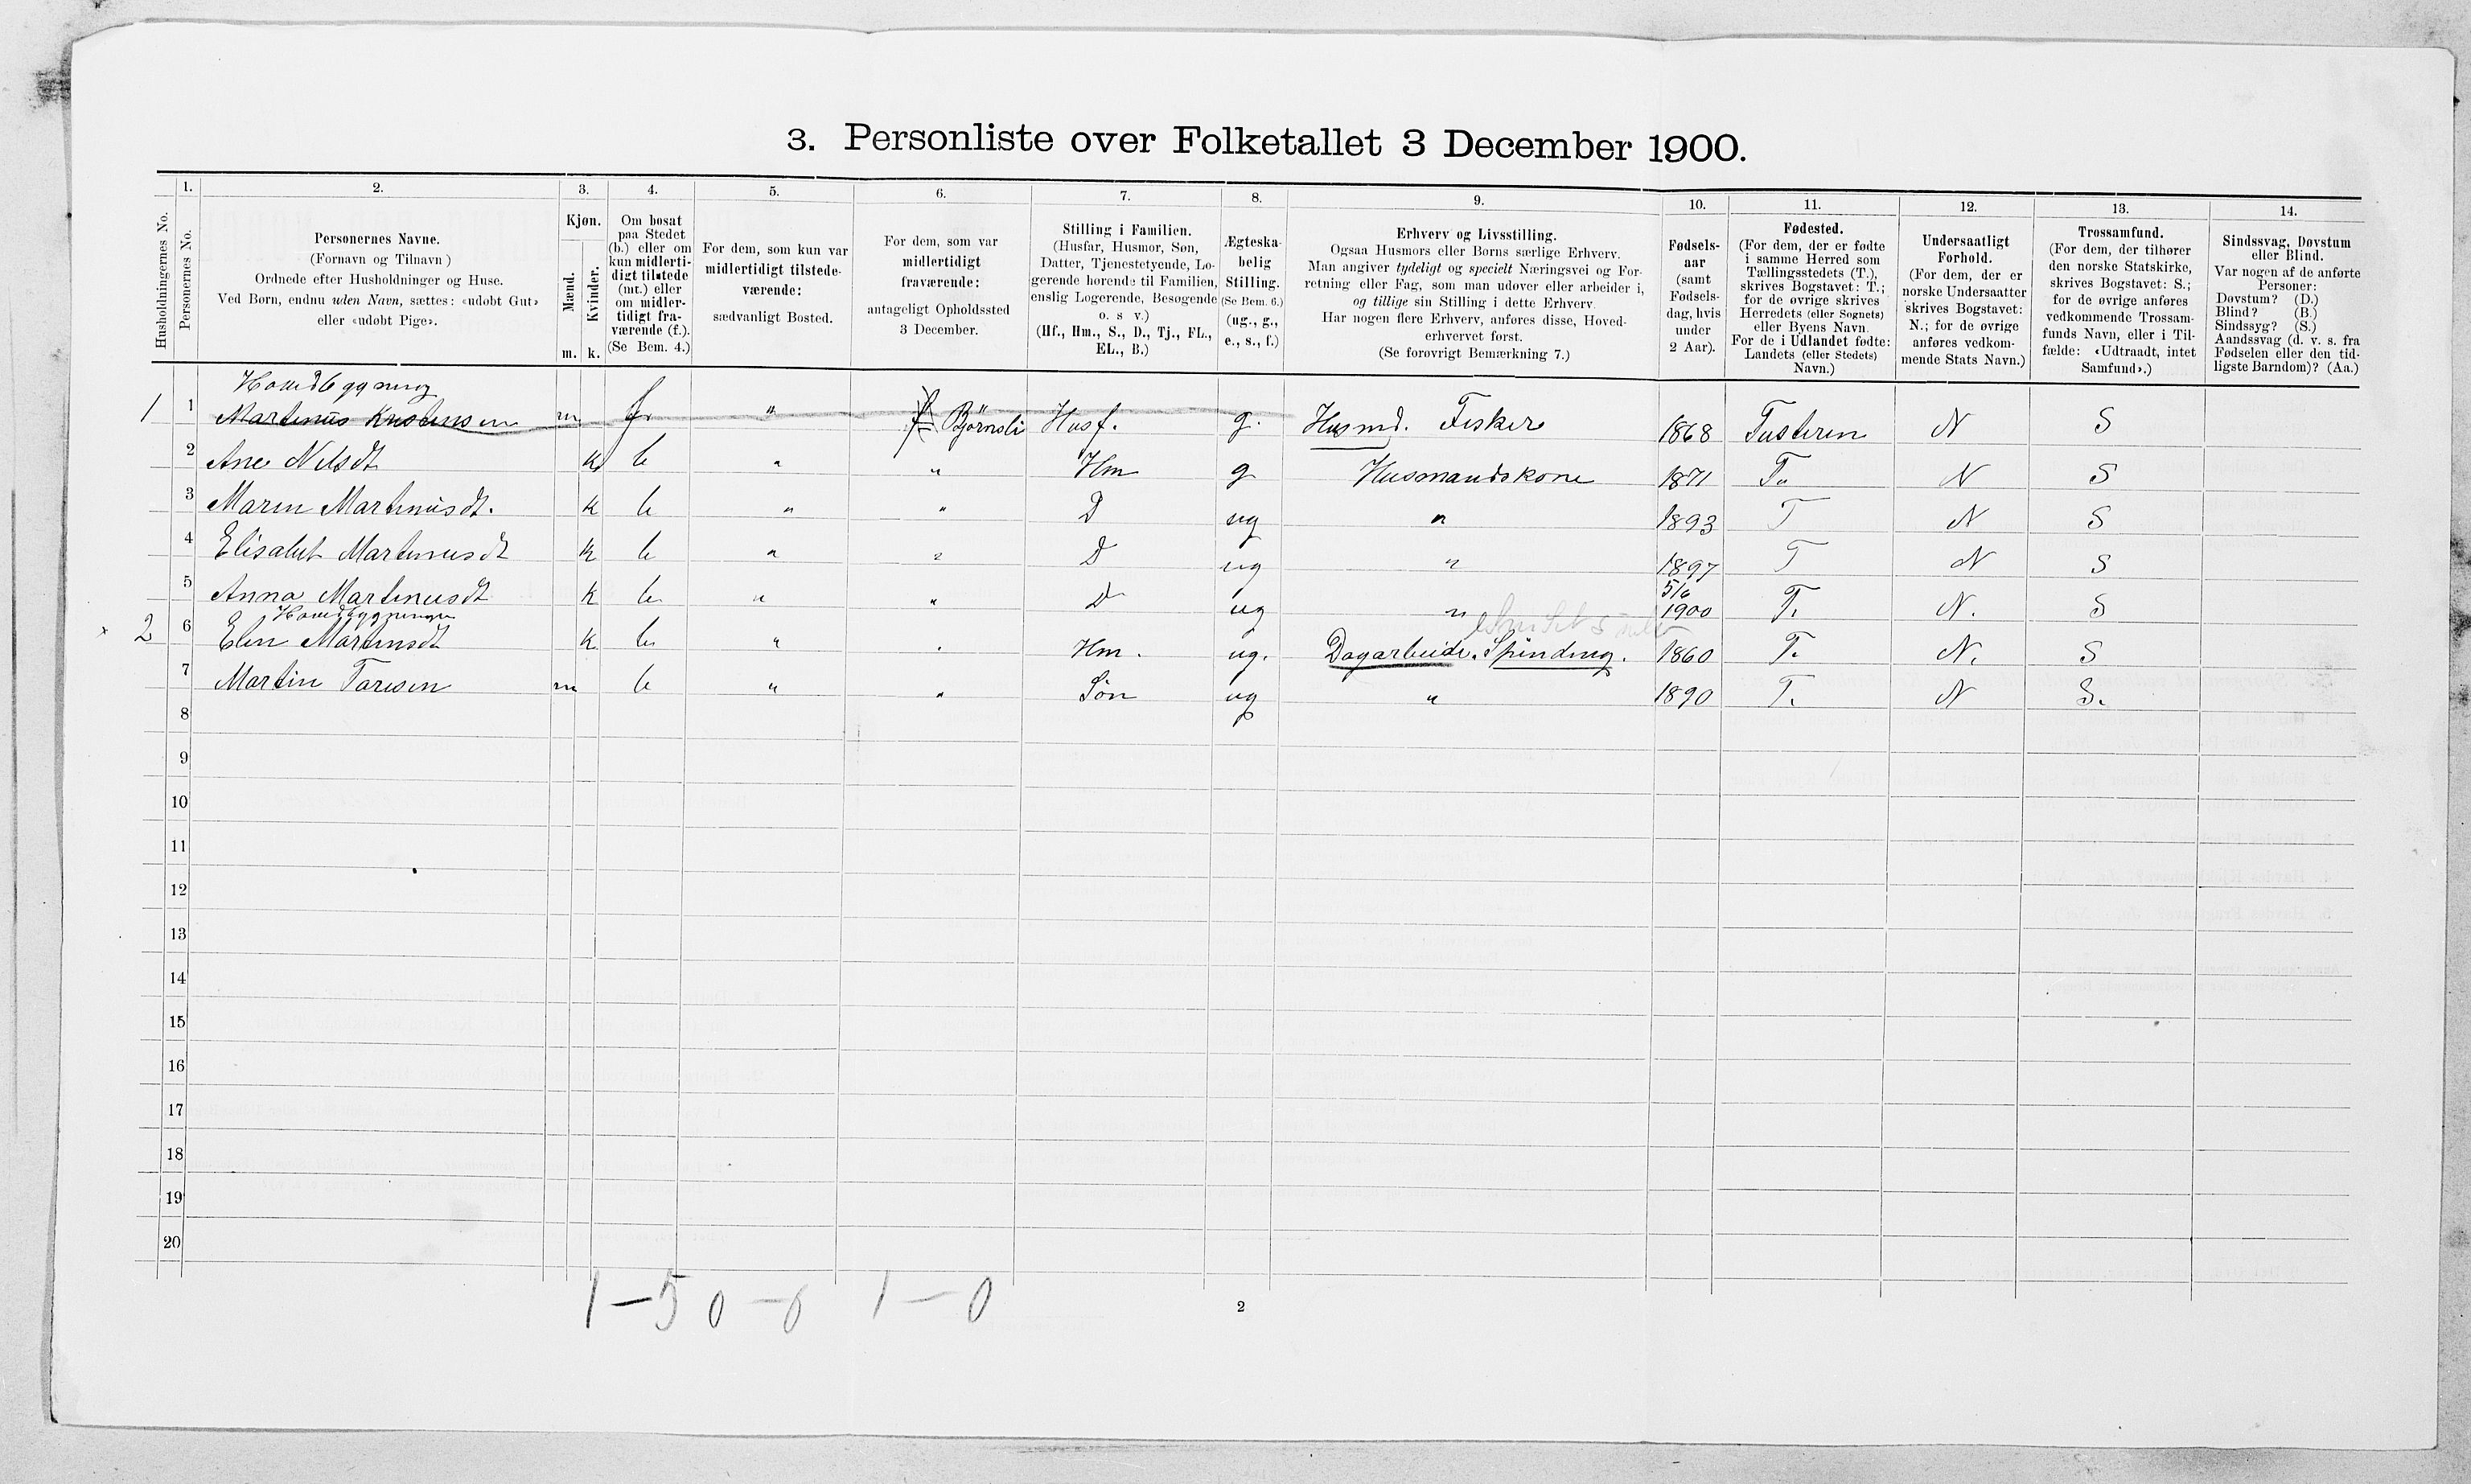 3. Personliste over Folketallet 3 December 1900.
1. 2. 3. 4. 5. 6. 7. 8. 9. 10. 11. 12. 13. 14.
Husholdningernes No.
Personernes No.
Personernes Navne.
(Fornavn og Tilnavn)
Ordnede efter Husholdninger og Huse.
Ved Børn, endnu uden Navn, sættes: «udøbt Gut»
eller «udøbt Pige».
Kjøn.
Mænd.
Kvinder.
m. k.
Om bosat
paa Stedet
(b.) eller om
kun midlerti-
digt tilstede
(mt.) eller
om midler-
tidigt fra-
værende (f.).
(Se Bem. 4.)
For dem, som kun var
midlertidigt tilstede-
værende:
sædvanligt Bosted.
For dem, som var
midlertidigt
fraværende:
antageligt Opholdssted
3 December.
Stilling i Familien.
(Husfar, Husmor, Søn,
Datter, Tjenestetyende, Lo-
gerende hørende til Familien,
enslig Logerende, Besøgende
o. s v.)
(Hf., Hm., S., D., Tj., FL.,
EL., B.)
Ægteska-
belig
Stilling.
(Se Bem. 6.)
(ug., g.,
e., s., f.)
Erhverv og Livsstilling.
Ogsaa Husmors eller Børns særlige Erhverv.
Man angiver tydeligt og specielt Næringsvei og For-
retning eller Fag, som man udøver eller arbeider i,
og tillige sin Stilling i dette Erhverv.
Har nogen flere Erhverv, anføres disse, Hoved-
erhvervet først.
(Se forøvrigt Bemærkning 7.)
Fødsels-
aar
(samt
Fødsels-
dag, hvis
under
2 Aar).
Fødested.
(For dem, der er fødte
i samme Herred som
Tællingsstedets (T.),
skrives Bogstavet: T.;
for de øvrige skrives
Herredets (eller Sognets)
eller Byens Navn.
For de i Udlandet fødte:
Landets (eller Stedets)
Navn.)
Undersaatligt
Forhold.
(For dem, der er
norske Undersaatter
skrives Bogstavet:
N.; for de øvrige
anføres vedkom-
mende Stats Navn.)
Trossamfund.
(For dem, der tilhører
den norske Statskirke,
skrives Bogstavet: S.;
for de øvrige anføres
vedkommende Trossam-
funds Navn, eller i Til-
fælde: «Udtraadt, intet
Samfund».)
Sindssvag, Døvstum
eller Blind.
Var nogen af de anførte
Personer:
Døvstum? (D.)
Blind? (B.)
Sindssyg? (S.)
Aandssvag (d. v. s. fra
Fødselen eller den tid-
ligste Barndom)? (Aa.)
Hovedbygning
1 1 Martinus Kristensen m f " Björnsli Husf. g. Husmd. Fisker 1868 Tusteren N S
2 Ane Nilsdt k b " " Hm g Husmandskone 1871 T. N S
3 Maren Martinusdt. k b " " D ug " 1893 T N S
4 Elisabet Martinusdt k b " " D ug " 1897 T N S
5 Anna Martinusdt k b " " D ug " 5/6 1900 T. N. S
Hovedbygningen
2 6 Elen Martinsdt k b " " Hm. ug. Dagarbeide. Spinding. 1860 T. N. S
7 Martin Taresen m b " " Søn ug " 1890 T. N S.
8
9
10
11
12
13
14
15
16
17
18
19
20
1 – 5 0 – 0 1 – 0
2